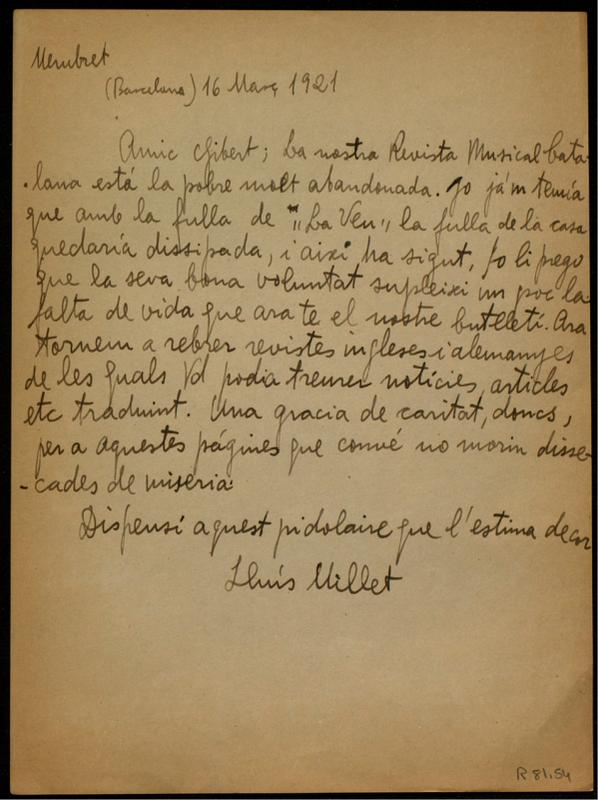 Membret
(Barcelona) 16 Març 1921
Amic Gibert; La nostra Revista Musical Cata-
-lana está la pobre molt abandonada. Jo já'm temía
que amb la fulla de "La Veu" la fulla de la casa
quedaría dissipada, i aixi ha sigut, Jo li prego
que la seva bona voluntat supleixi un poc la
falta de vida que ara te el nostre butlletí. Ara
tornem a rebrer revistes ingleses i alemanyes
de les quals Vd podia treurer notícies, articles
etc traduint. Una gracia de caritat, doncs,
per a aquestes págines que convé no morin disse-
-cades de miseria.
Dispensi aquest pidolaire que l'estima de cor
Lluís Millet
R 81.54